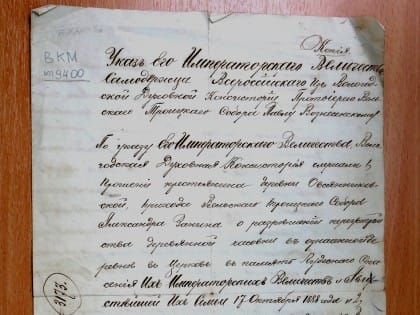 Копія.
ВКМ
9400
Указъ Его Императорскаго Величества
Самодержца Всероссійскаго Изъ Вологод-
ской Духовной Консисторіи Протоіерею Вель-
скаго Троицкаго Собора Павлу
По указу Его Императорскаго Величества, Воло-
годская Духовная Консисторія слушали 1,
Прошеніе крестьянина деревни
ской, прихода Вельскаго Троицкаго Собора
Александра о разрѣшеніи
ства деревянной часовни въ
въ Церковь въ память Чудеснаго Спа-
сенія Ихъ Императорскихъ Величествъ и Авгу-
стѣйшей Ихъ Семьи 17 Октября 1888 года и 2,
3173.